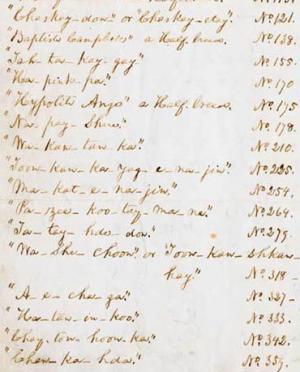 "Chaskey-don" or "Chaskey-etay." No 121.
"Baptiste Campbell" a Half breed. No 138.
"Tah-ta-kay-gay." No 155.
"Ha-pink-pa." No 170
"Hypolite Ange" a Half-breed. No 175
"Na-pay-Shue." No 178.
"Wa-kan-tan-ka." No 210.
"Toon-kan-ka-yag-e-na-jin." No 225.
"Ma-kat-e-na-jin." No 254.
"Pa-zee-koo-tay-ma-ne." No 264.
"Ta-tay-hde-don." No 279.
"Wa-She-choon." or "Toon-kan-shkan-
hay." No 318
"A-e-cha-ga." No 327-
"Ha-tan-in-koo." No 333.
"Chay-ton-hoon-ka." No 342.
"Chan-ka-hda." No 359.